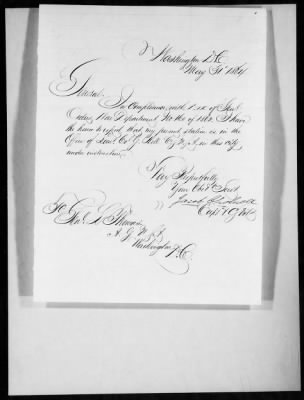 Washington D.C.
May 31st 1864
General.
In compliance with Par of Genl
Orders, War Department No of 186 I have
the honor to report that my present station is in the
Office of Col G. Q M in this city
under instructions.
Very Respectfully
Your Obt Servt
Jacob
Capt & Q M
To
Genl L Thomas
A. G. U. S. A.
Washington D.C.